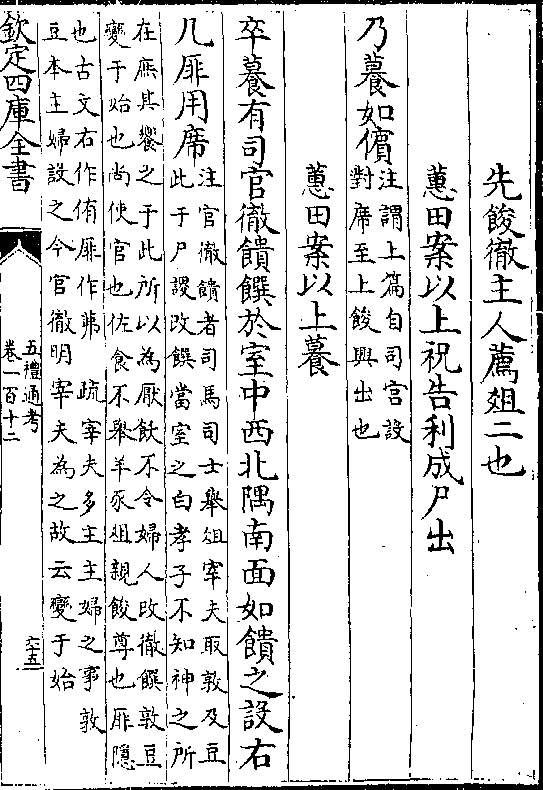 先餕徹主人薦俎二也
蕙田案以上祝告利成尸出
乃䭕如儐注謂上篇自司宮設
對席至上餕興出也
蕙田案以上䭕
卒䭕有司官徹饋饌於室中西北隅南面如饋之設右
几厞用席注官徹饋者司馬司士舉俎宰夫取敦及豆
此于尸謖改饌當室之白孝子不知神之所
在庶其饗之于此所以為厭飫不令婦人改徹饌敦豆
變于始也尚使官也佐食不舉羊豕俎親餕尊也厞隱
也古文右作侑厞作茀 疏宰夫多主主婦之事敦
豆本主婦設之今官徹明宰夫為之故云變于始
欽定四庫全書
五禮通考
卷一百十二
六十五